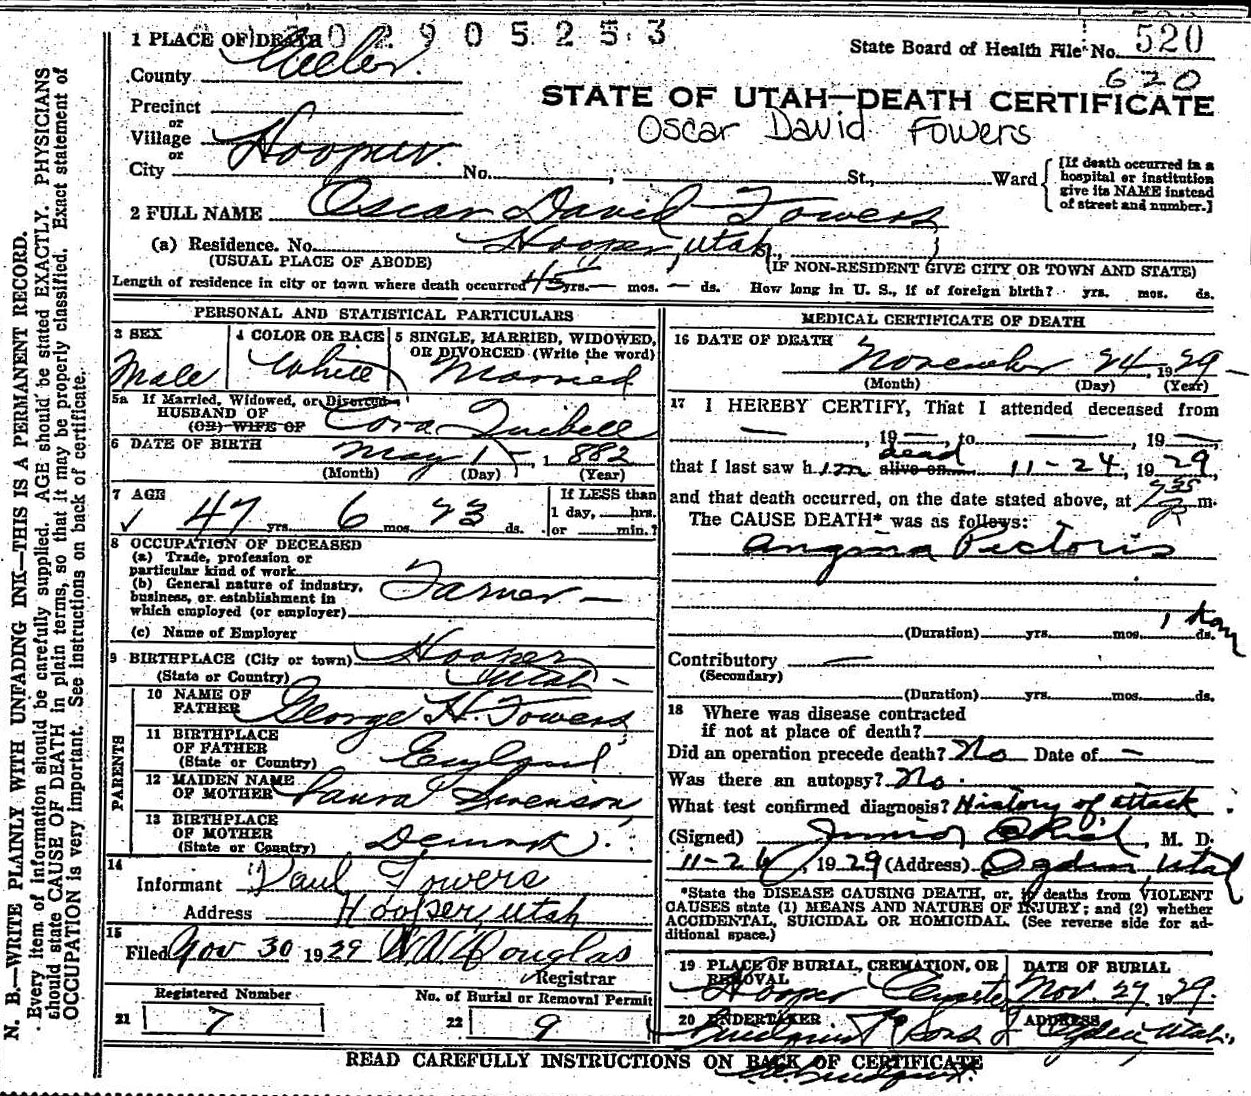 0 2 9 0 5 2 5 3
1 PLACE OF DEATH
State Board of Health File No. 520
620
County Weber.
STATE OF UTAH—DEATH CERTIFICATE
Oscar David Fowers
Precinct
or
Village Hooper.
or
City No. , St., Ward
[If death occurred in a
hospital or institution
give its NAME instead
of street and number.]
2 FULL NAME Oscar David Fowers
(a) Residence. No. Hooper, Utah
(USUAL PLACE OF ABODE) (IF NON-RESIDENT GIVE CITY OR TOWN AND STATE)
Length of residence in city or town where death occurred 45 yrs. — mos. — ds. How long in U. S., if of foreign birth? yrs. mos. ds.
PERSONAL AND STATISTICAL PARTICULARS
3 SEX
Male
4 COLOR OR RACE
White
5 SINGLE, MARRIED, WIDOWED,
OR DIVORCED (Write the word)
Married
5a If Married, Widowed, or Divorced
HUSBAND OF
(OR) WIFE OF Cora
6 DATE OF BIRTH May 1, 1882
(Month) (Day) (Year)
7 AGE
47 yrs. 6 mos. 23 ds.
If LESS than
1 day, hrs.
or min.?
8 OCCUPATION OF DECEASED
(a) Trade, profession or
particular kind of work
(b) General nature of industry,
business, or establishment in
which employed (or employer)
Farmer —
(c) Name of Employer
9 BIRTHPLACE (City or town) Hooper
(State or Country) Utah —
PARENTS
10 NAME OF
FATHER George H. Fowers
11 BIRTHPLACE
OF FATHER
(State or Country) England
12 MAIDEN NAME
OF MOTHER Laura Swenson
13 BIRTHPLACE
OF MOTHER
(State or Country) Denmark.
14
Informant Paul Fowers
Address Hooper, Utah
15
Filed Nov 30 1929 Douglas
Registrar
Registered Number
21 7
No. of Burial or Removal Permit
22 9
MEDICAL CERTIFICATE OF DEATH
16 DATE OF DEATH
November 24 1929
(Month) (Day) (Year)
17 I HEREBY CERTIFY, That I attended deceased from
—, 19—, to —, 19—,
that I last saw him alive on dead 11-24, 1929,
and that death occurred, on the date stated above, at 735 P m.
The CAUSE DEATH* was as follows:
Angina Pectoris
(Duration) yrs. mos. 1 hour ds.
Contributory —
(Secondary)
(Duration) yrs. mos. ds.
18 Where was disease contracted
if not at place of death?
Did an operation precede death? No Date of —
Was there an autopsy? No.
What test confirmed diagnosis? History of attack.
(Signed) Junior , M. D.
11-26, 1929 (Address) Ogden Utah
*State the DISEASE CAUSING DEATH, or, in deaths from VIOLENT
CAUSES state (1) MEANS AND NATURE OF INJURY; and (2) whether
ACCIDENTAL, SUICIDAL OR HOMICIDAL. (See reverse side for ad-
ditional space.)
19 PLACE OF BURIAL, CREMATION, OR
REMOVAL
Hooper
DATE OF BURIAL
Nov. 27, 1929.
20 UNDERTAKER
& Sons
ADDRESS
Ogden, Utah.
READ CAREFULLY INSTRUCTIONS ON BACK OF CERTIFICATE
N. B.—WRITE PLAINLY WITH UNFADING INK—THIS IS A PERMANENT RECORD.
Every item of information should be carefully supplied. AGE should be stated EXACTLY. PHYSICIANS
should state CAUSE OF DEATH in plain terms, so that it may be properly classified. Exact statement of
OCCUPATION is very important. See instructions on back of certificate.